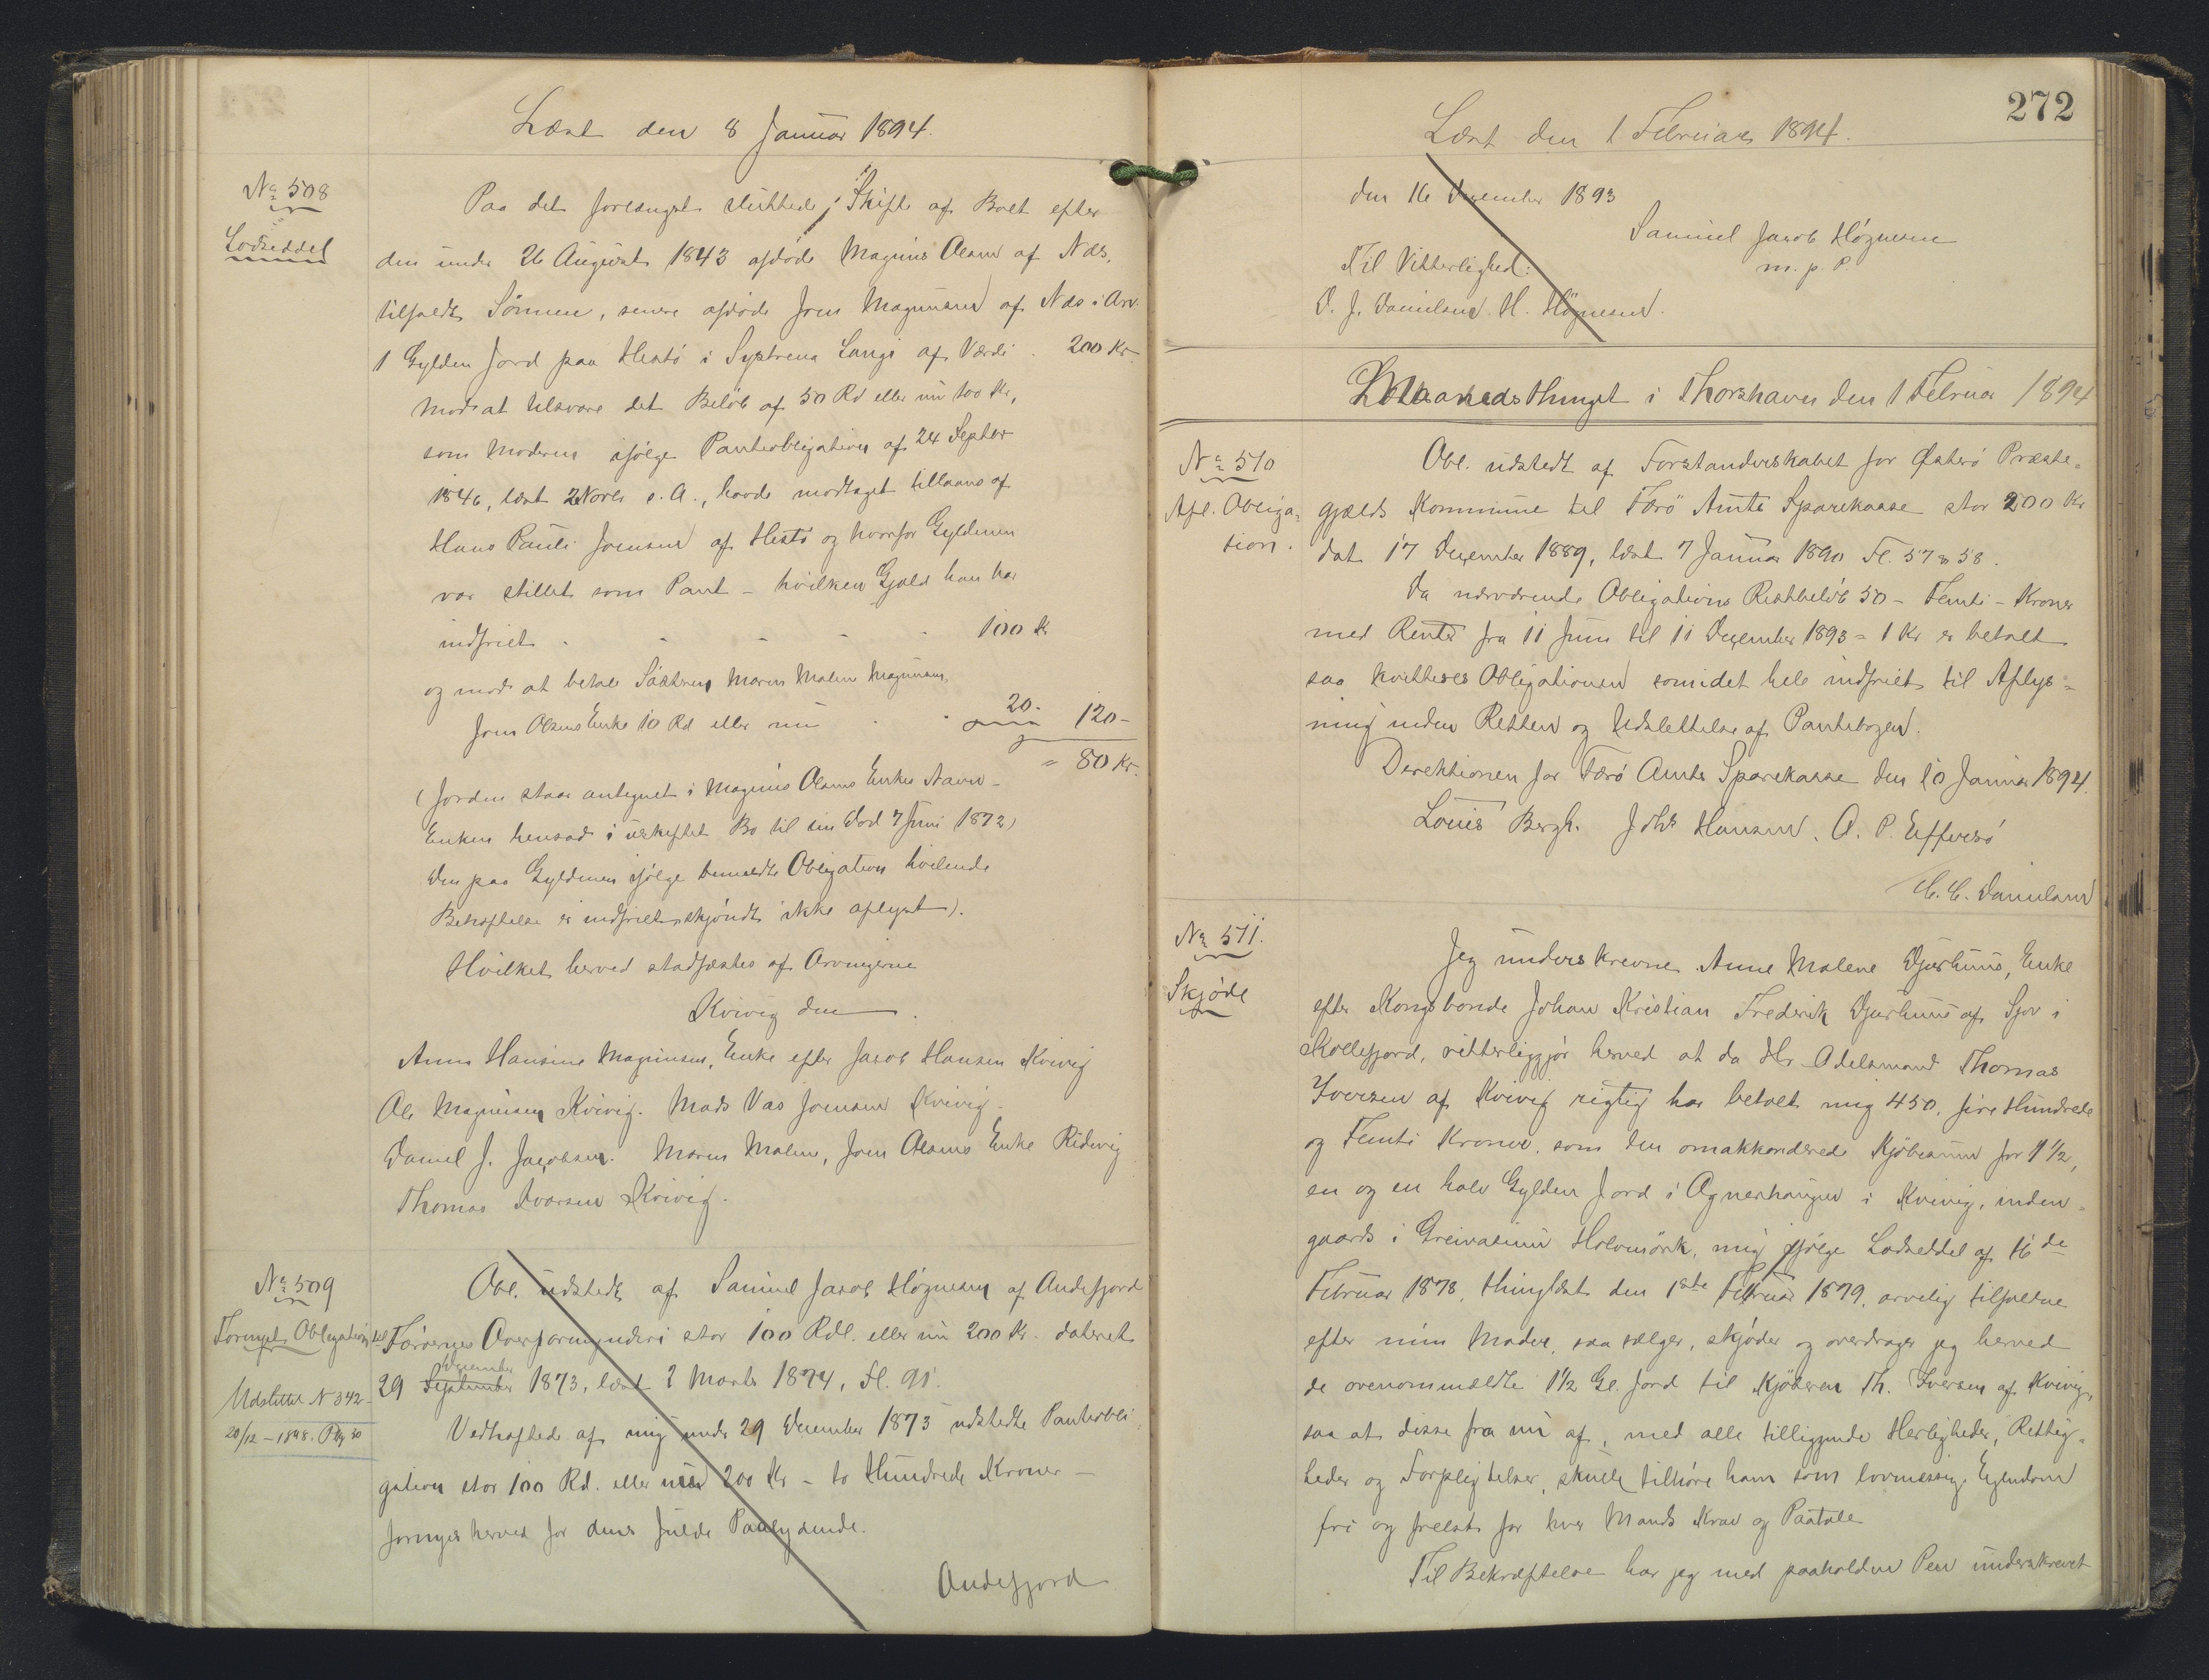 Læst den 8 Januar 1894.
No 508
Lodseddel
Paa det forlængst sluttede Skifte af Boet efter
den under 26 August 1843 afdøde Magnus Olsen af Næs,
tilfaldt Sönnen, senere afdøde Joen Magnussen af Næs i Arv
1 Gylden Jord paa Hestö i Systrena Langi af Værdi . 200 Kr.
mod at tilsvare det Belöb af 50 Rd eller nu 100 Kr,
som Moderen ifölge Panteobligation af 24 Septbr
1846, læst 2 Novbr s. A., havde modtaget tillaans af
Hans Pauli Joensen af Hestö og hvorfor Gyldenen
var stillet som Pant - hvilken Gjæld han har
indfriet . - - - . 100 Kr
og mod at betale Söstren Maren Malene Magnussen,
Joen Olsens Enke 10 Rd eller nu . . 20. 120 -
= 80 Kr.
(Jorden staar antegnet i Magnus Olsens Enkes Navn -
Enken hensad i uskiftet Bo til sin Död 7 Juni 1872)
Den paa Gyldenen ifölge bemeldte Obligation hvilende
Behæftelse er indfriet, skjöndt ikke aflyst).
Hvilket herved stadfæstes af Arvingerne
Kvivig den .
Anna Hansine Magnussen, Enke efter Jacob Hansen Kvivig
Ole Magnussen Kvivig. Mads Vas Joensen Kvivig.
Daniel J. Jacobsen. Maren Malene, Joen Olsens Enke
Thomas Iversen Kvivig.
No 509
Fornyet Obligation
Udslettet N 342
20/12 - 1898.
Obl. udstedt af Samuel Jacob Högnesen af Andefjord
til Færöernes Overformynderi stor 100 Rdl. eller nu 200 Kr. dateret
December
29 September 1873, læst 2 Marts 1874, Fl. 91.
Vedhæftede af mig under 29 December 1873 udstedte Panteobli-
gation stor 100 Rd. eller nu 200 Kr - to Hundrede Kroner -
fornyes herved for dens fulde Paalydende.
Andefjord
272
Læst den 1 Februar 1894.
den 16 December 1893
Samuel Jacob Högnesen
m. p. P.
Til Vitterlighed:
D. J. Danielsen. H. Högnesen.
Maanedsthinget i Thorshavn den 1 Februar 1894
No 510
Afl. Obliga-
tion.
Obl. udstedt af Forstanderskabet for Østerö Præste-
gjælds Kommune til Færö Amts Sparekasse stor 200 Kr
dat 17 December 1889, læst 7 Januar 1890 Fl. 57 & 58.
Da nærværende Obligations Restbelöb 50 - Femti - Kroner
med Renter fra 11 Juni til 11 December 1893 = 1 Kr er betalt
saa kvitteres Obligationen som i det hele indfriet til Aflys-
ning inden Retten og Udslettelse af Pantebogen.
Direktionen for Færö Amts Sparekasse den 10 Januar 1894.
Louis Bergh. Johs Hansen. O. P. Effersö
C. C. Danielsen
No 511.
Skjöde
Jeg underskrevne Anne Malene Djurhuus, Enke
efter Kongsbonde Johan Kristian Frederik Djurhuus af Sjov i
Kollefjord, vitterliggjör herved at da Hr. Odelsmand Thomas
Iversen af Kvivig rigtig har betalt mig 450, fire Hundrede
og Femti Kroner, som den omakkorderede Kjöbesum for 1 1/2,
en og en halv Gylden Jord i Ognerhaugen i Kvivig, inden-
gaards i Holvmörk, mig ifölge Lodseddel af 16de
Februar 1878, thinglæst den 1ste Februar 1879, arvelig tilfaldne
efter min Moder, saa sælger, skjöder og overdrager jeg herved
de ovenommeldte 1 1/2 Gl. Jord til Kjöberen Th. Iversen af Kvivig,
saa at disse fra nu af, med alle tilliggende Herligheder, Rettig-
heder og Forpligtelser, skulle tilhöre ham som lovmæssig Ejendom
fri og frelst for hver Mands Krav og Paatale
Til Bekræftelse har jeg med paaholden Pen underskrevet